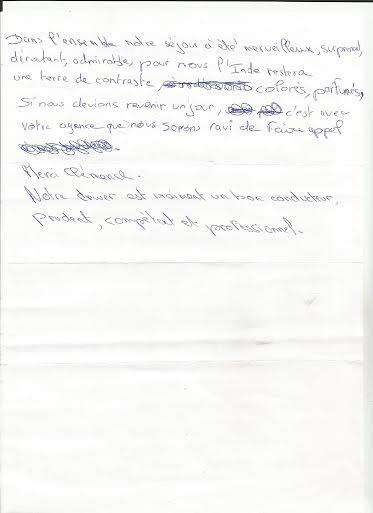 Dans l'ensemble notre séjour a été merveilleux, surprenant,
déroutant, admirable, pour nous l'Inde restera
une terre de contraste, colorés, parfumés,
Si nous devions revenir un jour, c'est avec
votre agence que nous serons ravi de faire appel
Merci
Notre driver est vraiment un bon conducteur,
prudent, compétent et professionnel.